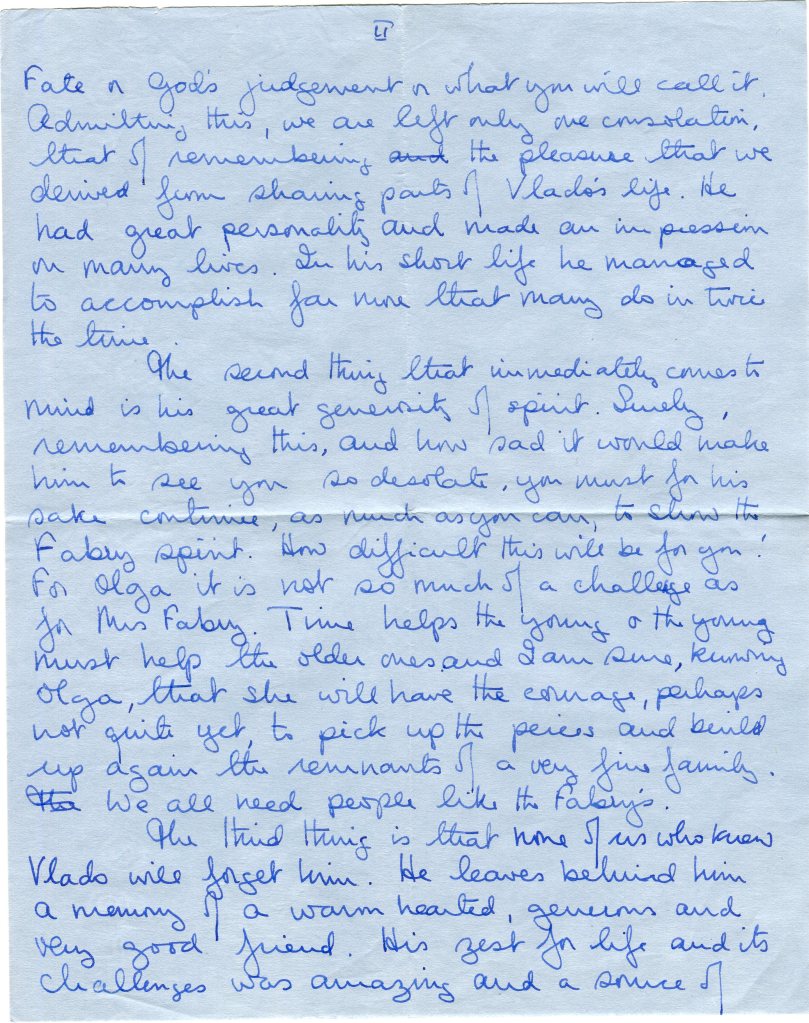 II
Fate or God's judgement or what you will call it.
Admitting this, we are left only one consolation,
that of remembering and the pleasure that we
derived from sharing parts of Vlado's life. He
had great personality and made an impression
on many lives. In his short life he managed
to accomplish far more that many do in twice
the time.
The second thing that immediately comes to
mind is his great generosity of spirit. Surely,
remembering this, and how sad it would make
him to see you so desolate, you must for his
sake continue, as much as you can, to show the
Fabry spirit. How difficult this will be for you!
For Olga it is not so much of a challenge as
for Mrs Fabry. Time helps the young & the young
must help the older ones and I am sure, knowing
Olga, that she will have the courage, perhaps
not quite yet, to pick up the peices and build
up again the remnants of a very fine family.
The We all need people like the Fabry's.
The third thing is that none of us who knew
Vlado will forget him. He leaves behind him
a memory of a warm hearted, generous and
very good friend. His zest for life and its
challenges was amazing and a source of